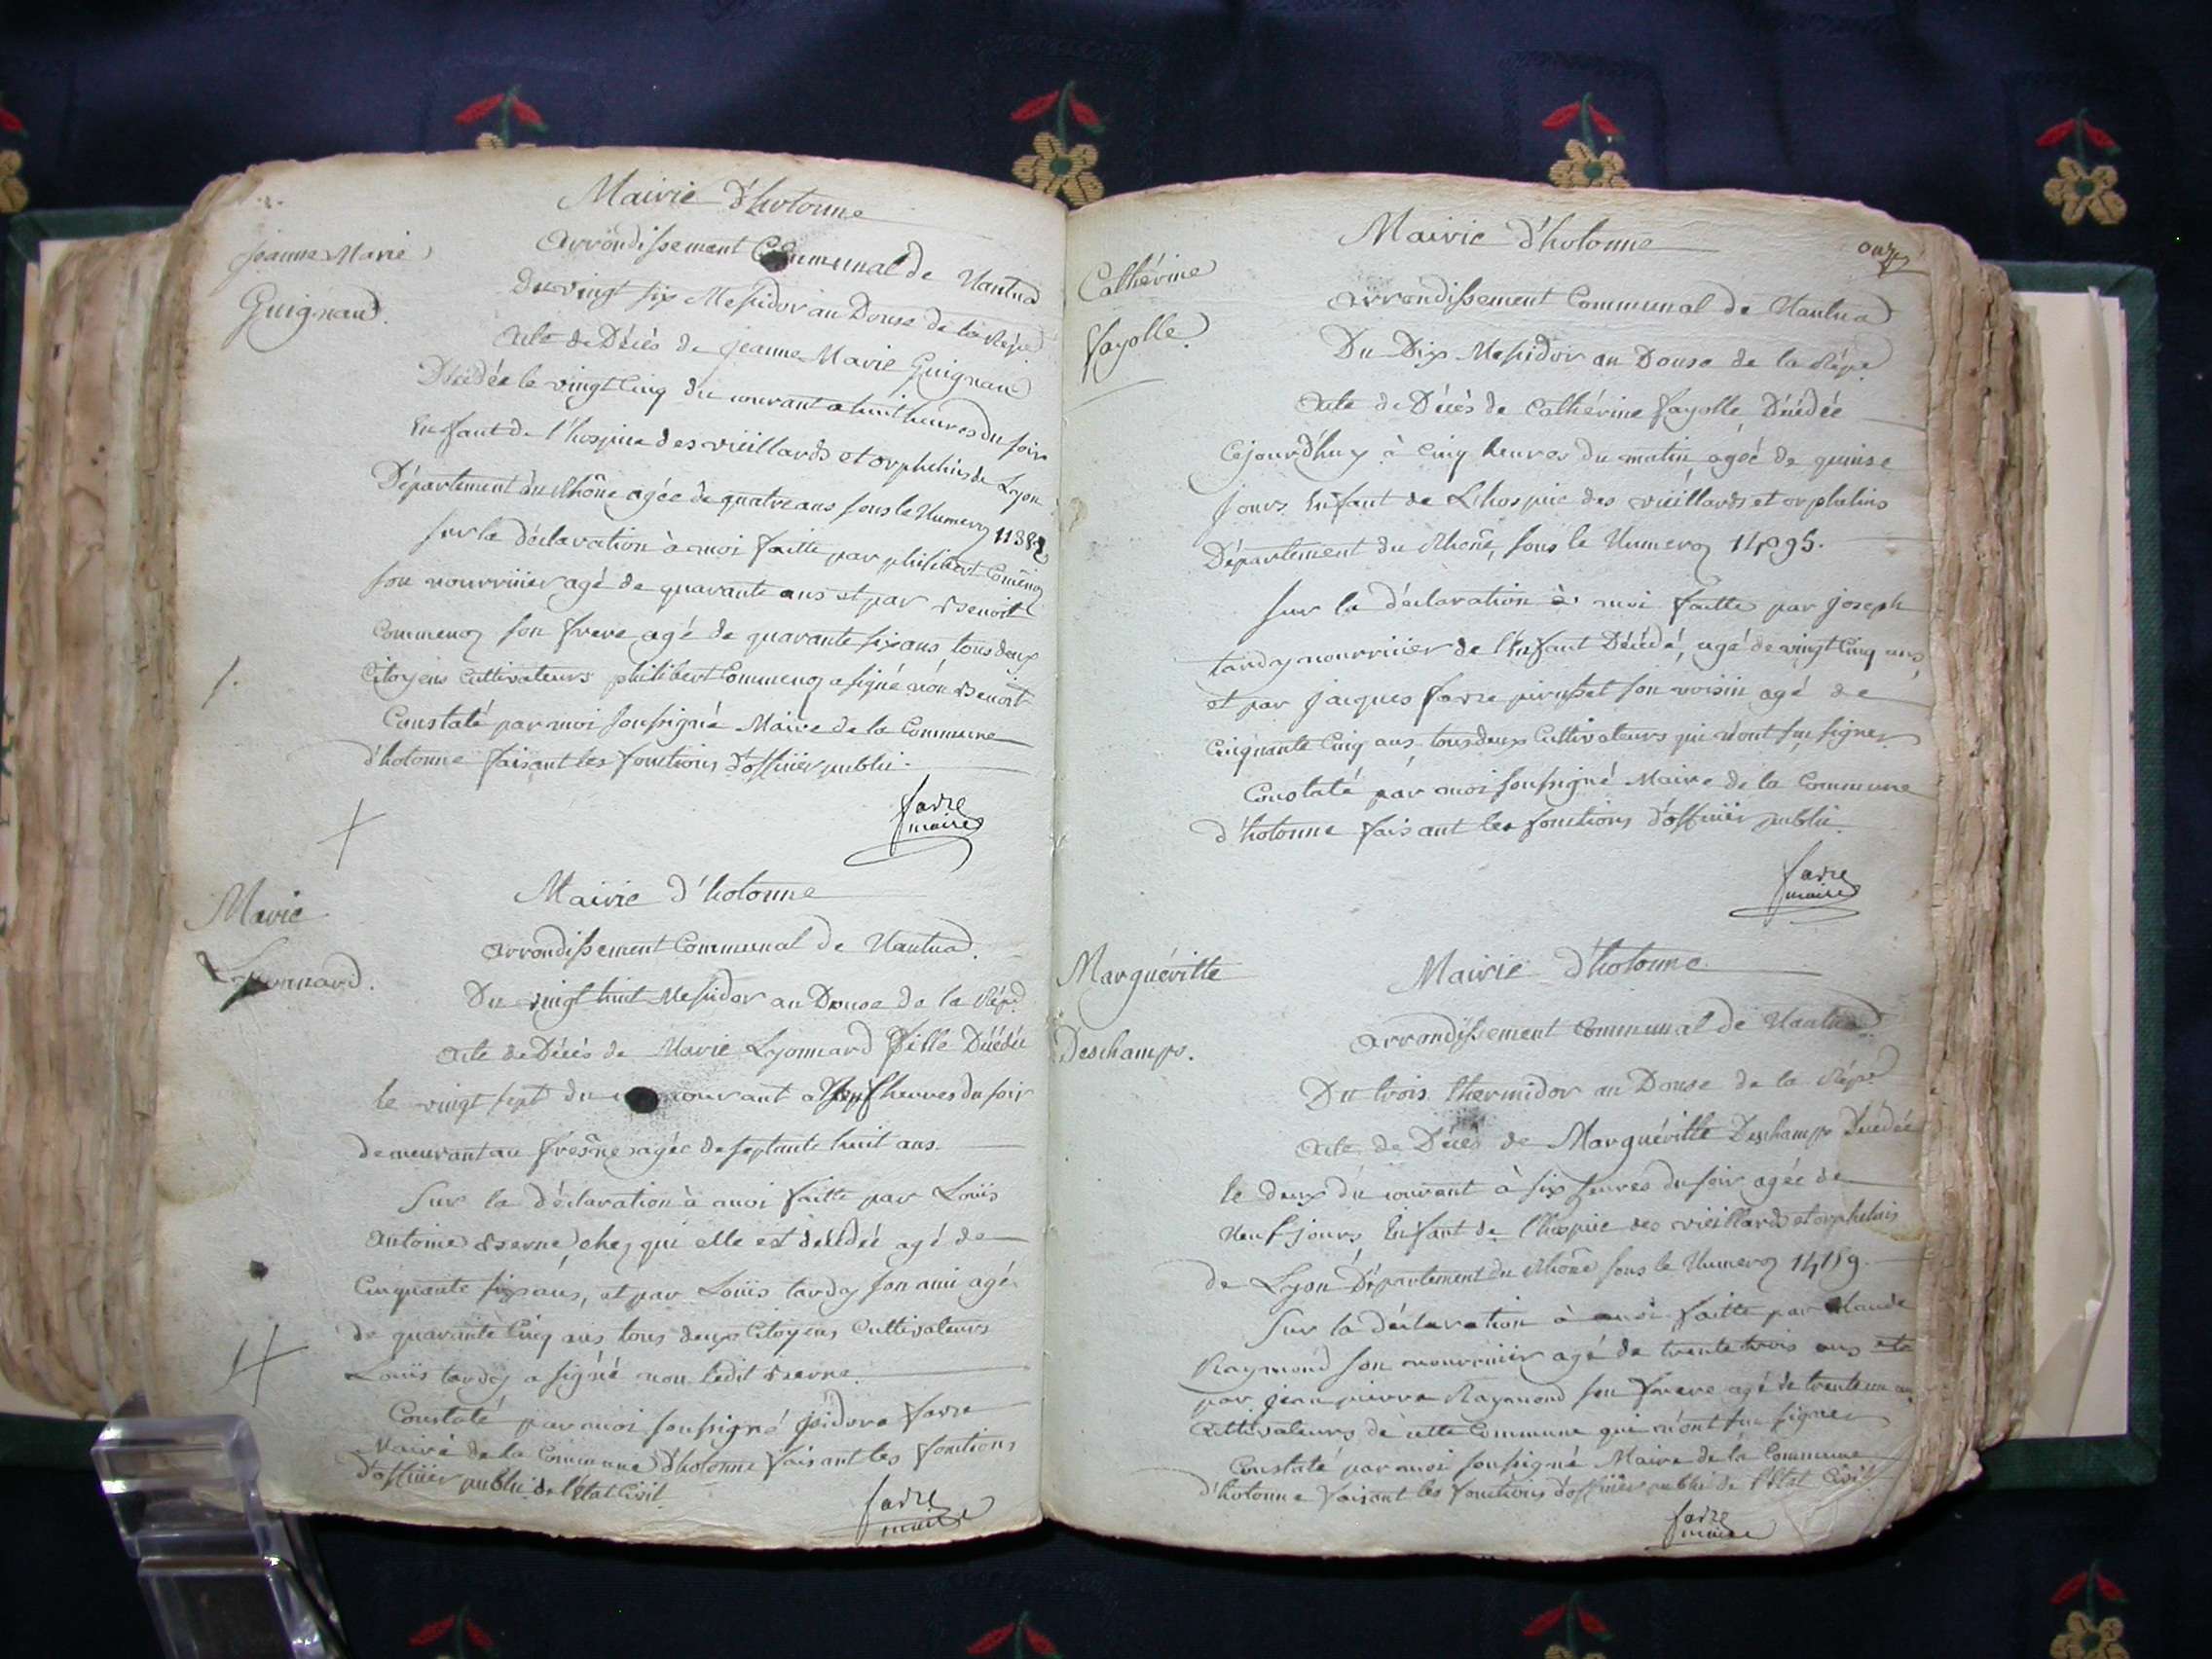 Mairie d'hotonne
Jeanne Marie
Guignand.
Arrondissement Communal de Nantua
Du vingt six Messidor an Douse de la Répe
Acte de Décès de jeanne Marie Guignand
Décédée le vingt Cinq du courant a huit heures du soir
Enfant de l'hospice des vieillards et orphelins de Lyon
Département du Rhône agée de quatre ans sous le Numero
sur la déclaration à moi faitte par philibert
son nourricier agé de quarante ans et par Benoit
Commenoz son frere agé de quarante six ans tous deux
Citoyens Cultivateurs philibert Commenoz a signé non Benoit
Constaté par moi soussigné Maire de la Commune
d'hotonne faisant les fonctions d'officier public.
favre
maire
Mairie d'hotonne
Marie
Lyonnard.
Arrondissement Communal de Nantua.
Du vingt huit Messidor an Douse de la Répe
Acte de Décès de Marie Lyonnard fille Décédée
le vingt sept du courant a heures du soir
demeurant au fresne agée de septante huit ans.
Sur la déclaration à moi faitte par Louis
Antoine Berne chez qui elle est décédée agé de
Cinquante six ans, et par Louis tardy son ami agé
de quarante Cinq ans tous deux Citoyens Cultivateurs
Louis tardy a signé non ledit Berne.
Constaté par moi soussigné jsidore favre
Maire de la Commune d'hotonne faisant les fonctions
d'officier public de l'état Civil.
favre
maire
onze
Mairie d'hotonne
Cathérine
fayolle.
Arrondissement Communal de Nantua
Du Dix Messidor an Douse de la Répe
Acte de Décès de Cathérine fayolle, Décédée
Cejourd'huy à Cinq heures du matin, agée de quinse
jours Enfant de L'hospice des vieillards et orphelins
Département du Rhône, sous le Numero
sur la déclaration à moi faitte par joseph
tardy nourricier de l'Enfant Décédé, agé de vingt Cinq ans,
et par jacques favre son voisin agé de
Cinquante Cinq ans, tous deux Cultivateurs qui n'ont su signer
Constaté par moi soussigné Maire de la Commune
d'hotonne faisant les fonctions d'officier public.
favre
maire
Mairie d'hotonne.
Marguéritte
Deschamps.
Arrondissement Communal de Nantua.
Du trois thermidor an Douse de la Répe
Acte de Décès de Marguéritte Deschamps Décédée
le deux du courant à six heures du soir agée de
Neuf jours, Enfant de l'hospice des vieillards et orphelins
de Lyon Département du Rhône sous le Numero
Sur la déclaration à moi faitte par Claude
Raymond son nourricier agé de trente trois ans et
par jean pierre Raymond son frere agé de trente un ans
Cultivateurs de cette Commune qui n'ont su signer
Constaté par moi soussigné Maire de la Commune
d'hotonne faisant les fonctions d'officier public de l'état Civil
favre
maire